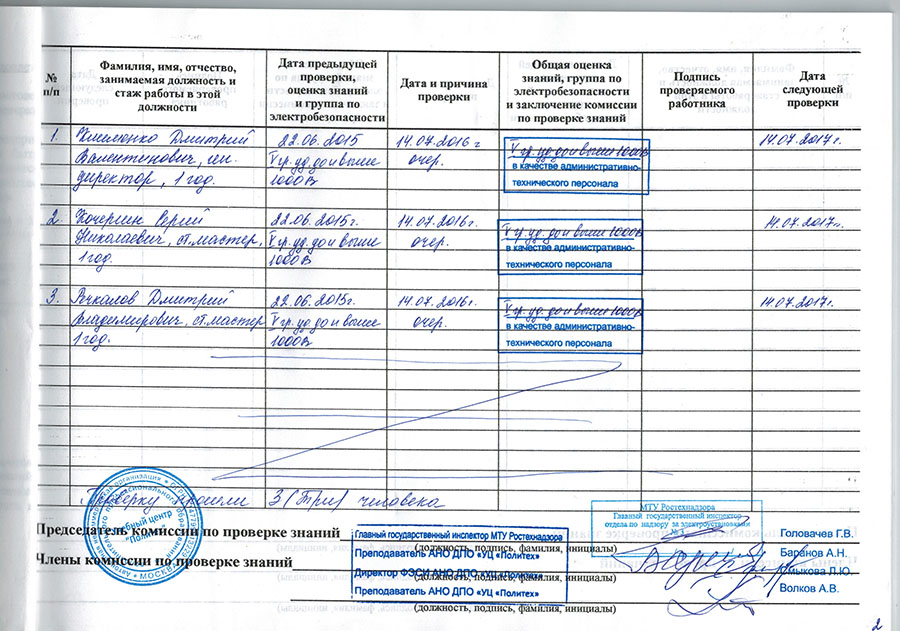 № п/п
Фамилия, имя, отчество, занимаемая должность и стаж работы в этой должности
Дата предыдущей проверки, оценка знаний и группа по электробезопасности
Дата и причина проверки
Общая оценка знаний, группа по электробезопасности и заключение комиссии по проверке знаний
Подпись проверяемого работника
Дата следующей проверки
1. Дмитрий 22.06.2015 14.07.2016 г V гр. уд. до и выше 1000В 14.07.2017г.
Валентинович, ген. V гр. уд. до и выше очер. в качестве административно-
директор, 1 год. 1000В технического персонала
2. Кочергин Сергей 22.06.2015г. 14.07.2016г. V гр. уд. до и выше 1000В 14.07.2017г.
Николаевич, ст. мастер, V гр. уд. до и выше очер. в качестве административно-
1 год. 1000В технического персонала
3. Дмитрий 22.06.2015г. 14.07.2016г. V гр. уд. до и выше 1000В 14.07.2017г.
Владимирович, ст. мастер V гр. уд. до и выше очер. в качестве административно-
1 год. 1000В технического персонала
Проверку прошли 3 (Три) человека
МТУ Ростехнадзора
Главный государственный инспектор
отдела по надзору за электроустановками
Председатель комиссии по проверке знаний Главный государственный инспектор МТУ Ростехнадзора Головачев Г.В.
(должность, подпись, фамилия, инициалы)
Члены комиссии по проверке знаний Преподаватель АНО ДПО «УЦ «Политех» Баранов А.Н.
Директор ФЭСИ АНО ДПО «УЦ «Политех» Л.Ю.
(должность, подпись, фамилия, инициалы)
Преподаватель АНО ДПО «УЦ «Политех» Волков А.В.
(должность, подпись, фамилия, инициалы)
Учебный центр
"Политех"
МОСКВА
2